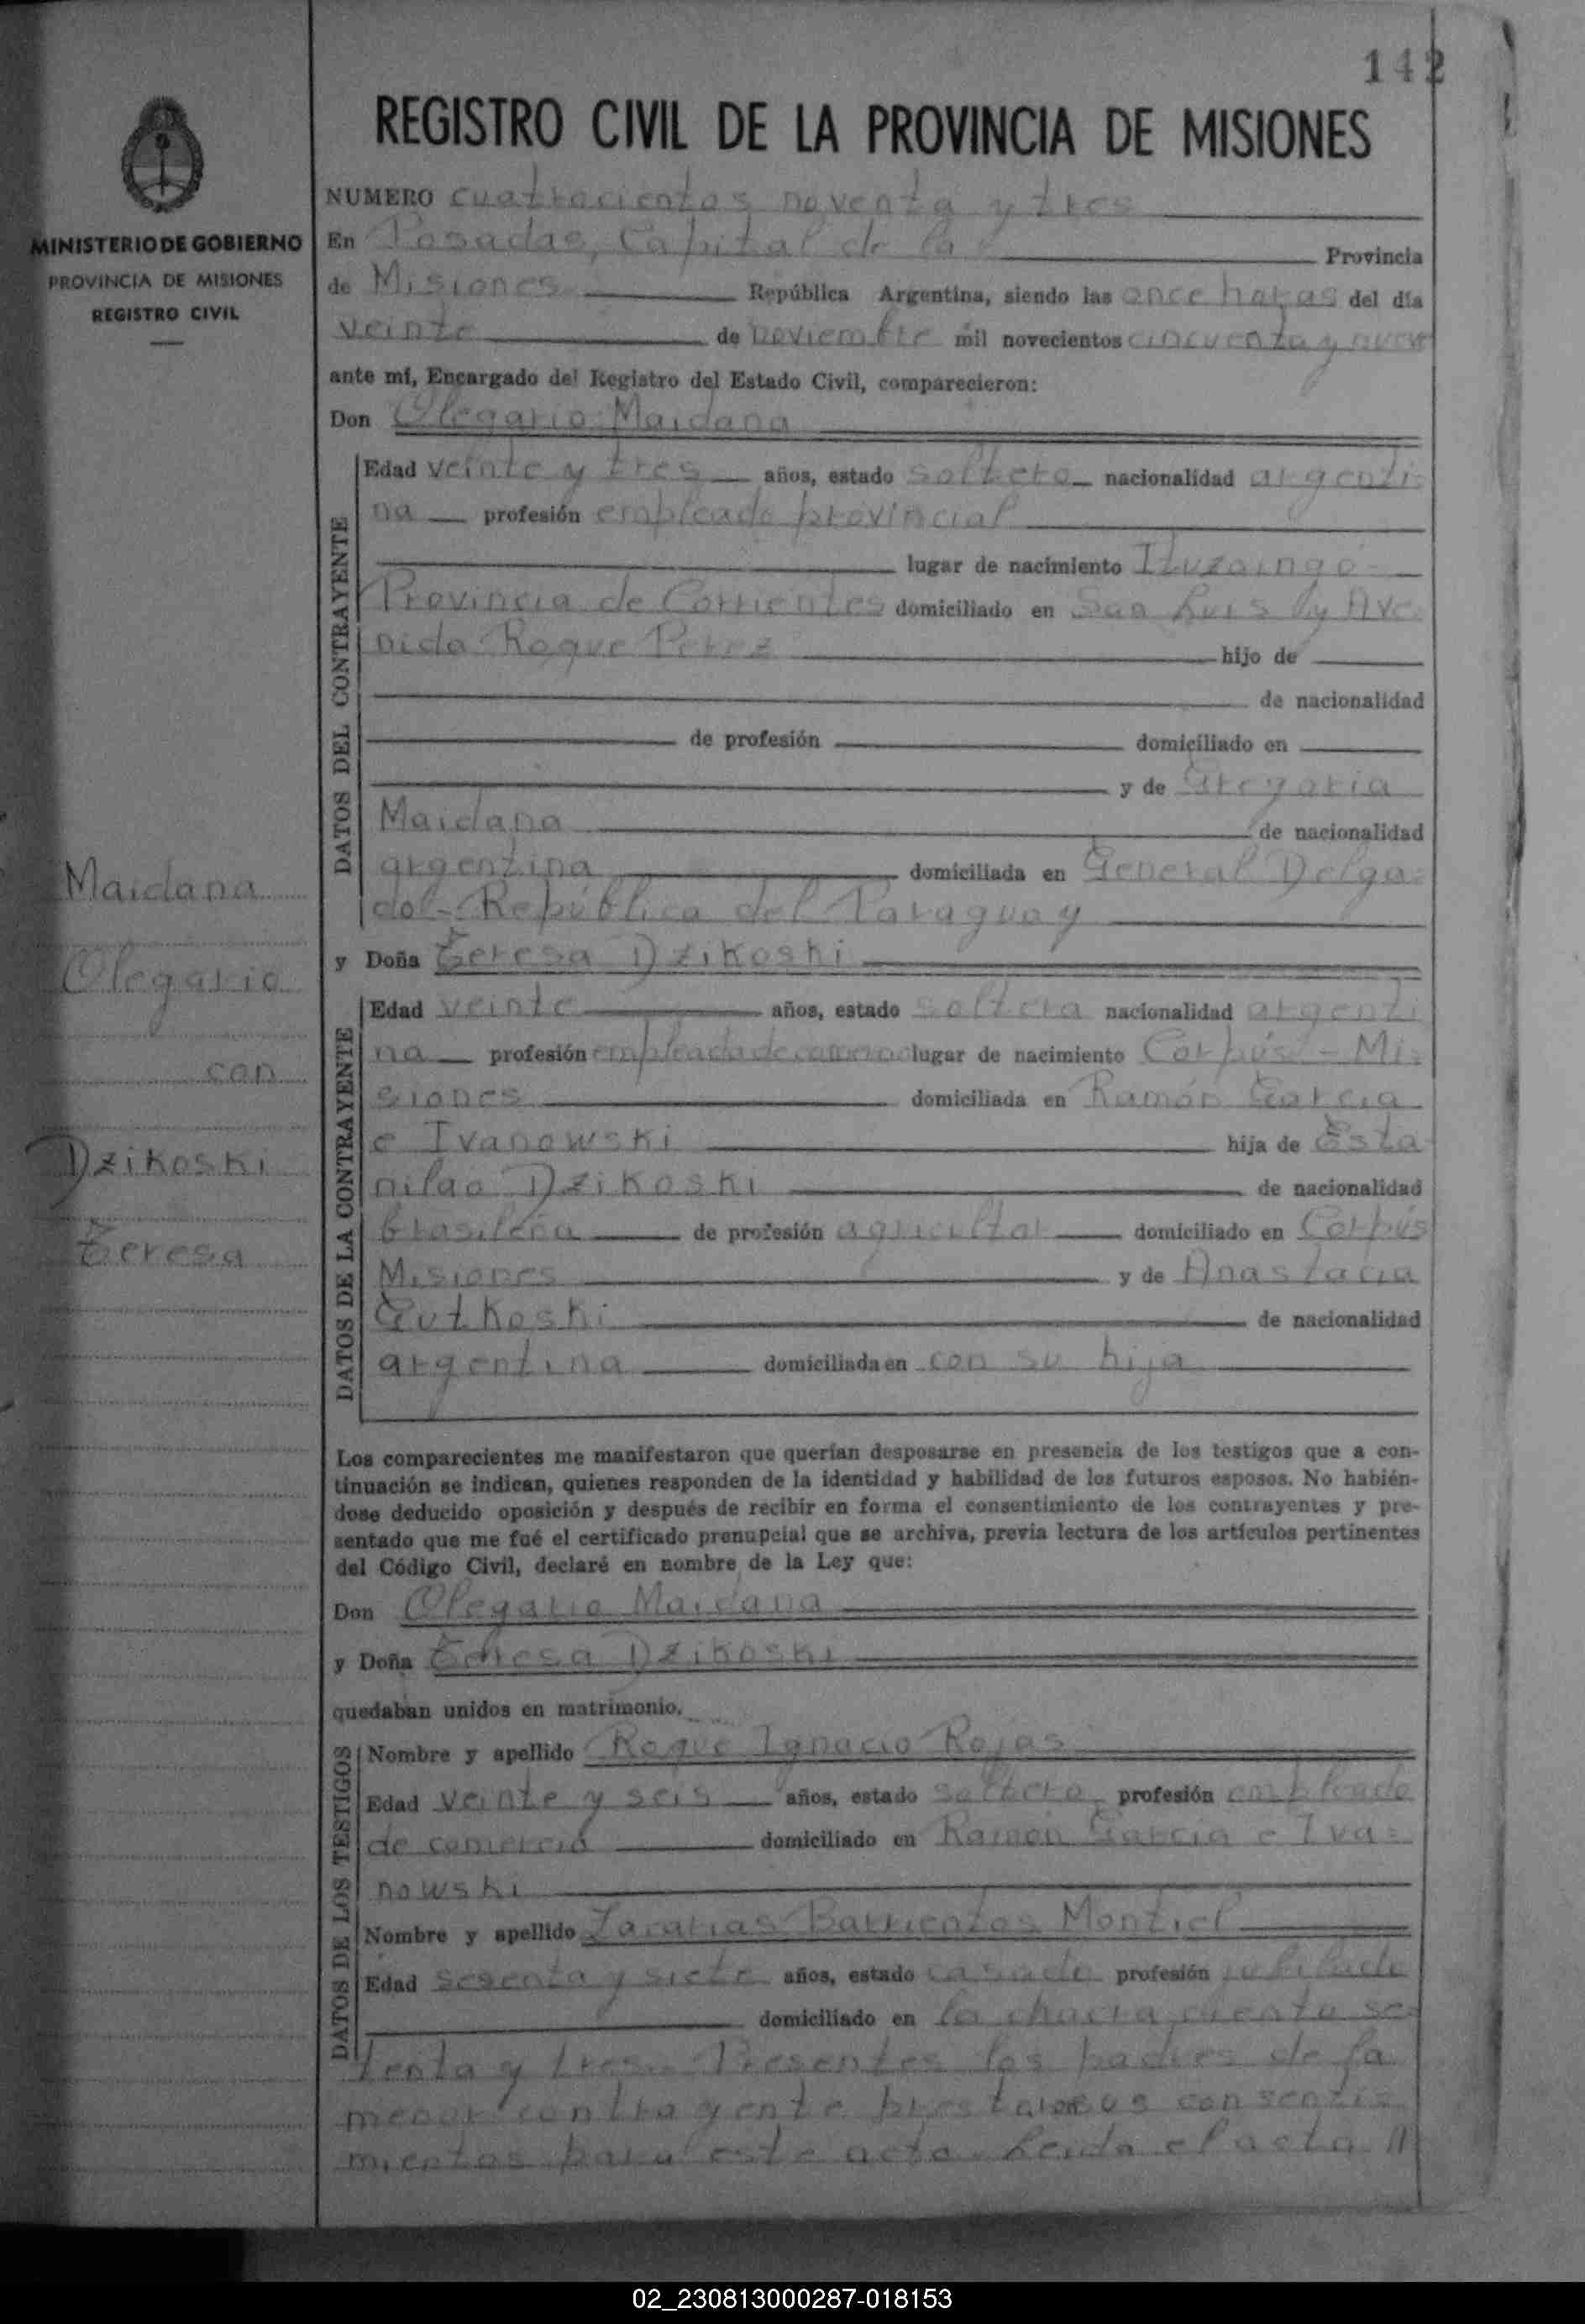 142
REGISTRO CIVIL DE LA PROVINCIA DE MISIONES
MINISTERIO DE GOBIERNO
PROVINCIA DE MISIONES
REGISTRO CIVIL
NUMERO cuatrocientos noventa y tres
En Posadas, Capital de la Provincia
de Misiones República Argentina, siendo las once horas del día
veinte de noviembre mil novecientos cincuenta y nueve
ante mí, Encargado del Registro del Estado Civil, comparecieron:
Don Olegario Maidana
DATOS DEL CONTRAYENTE
Edad veinte y tres años, estado soltero nacionalidad argenti-
na profesión empleado provincial
lugar de nacimiento Ituzaingo
Provincia de Corrientes domiciliado en San Luis y Ave
nida Roque Perez hijo de
de nacionalidad
de profesión domiciliado en
y de Gregoria
Maidana de nacionalidad
argentina domiciliada en General Delga-
do - República del Paraguay
y Doña Teresa Dzikoski
DATOS DE LA CONTRAYENTE
Edad veinte años, estado soltera nacionalidad argenti
na profesión empleada de comercio lugar de nacimiento Corpús - Mi-
siones domiciliada en Ramón García
e Ivanowski hija de Esta-
nilao Dzikoski de nacionalidad
brasileña de profesión agricultor domiciliado en Corpús
Misiones y de Anastacia
Gutkoski de nacionalidad
argentina domiciliada en con su hija
Maidana
Olegario
con
Dzikoski
Teresa
Los comparecientes me manifestaron que querían desposarse en presencia de los testigos que a con-
tinuación se indican, quienes responden de la identidad y habilidad de los futuros esposos. No habién-
dose deducido oposición y después de recibir en forma el consentimiento de los contrayentes y pre-
sentado que me fué el certificado prenupcial que se archiva, previa lectura de los artículos pertinentes
del Código Civil, declaré en nombre de la Ley que:
Don Olegario Maidana
y Doña Teresa Dzikoski
quedaban unidos en matrimonio.
DATOS DE LOS TESTIGOS
Nombre y apellido Roque Ignacio Rojas
Edad veinte y seis años, estado soltero profesión empleado
de comercio domiciliado en Ramón García e Iva-
nowski
Nombre y apellido Zacarias Barrientos Montiel
Edad sesenta y siete años, estado casado profesión jubilado
domiciliado en la chacra ciento se-
tenta y tres. Presentes los padres de la
menor contrayente prestaron sus consenti-
mientos para este acto. Leida el acta //
02_230813000287-018153